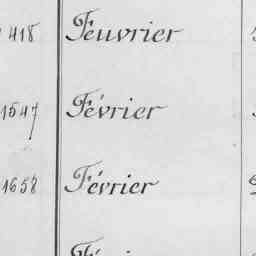 418 Feuvrier
1547 Février
1658 Février